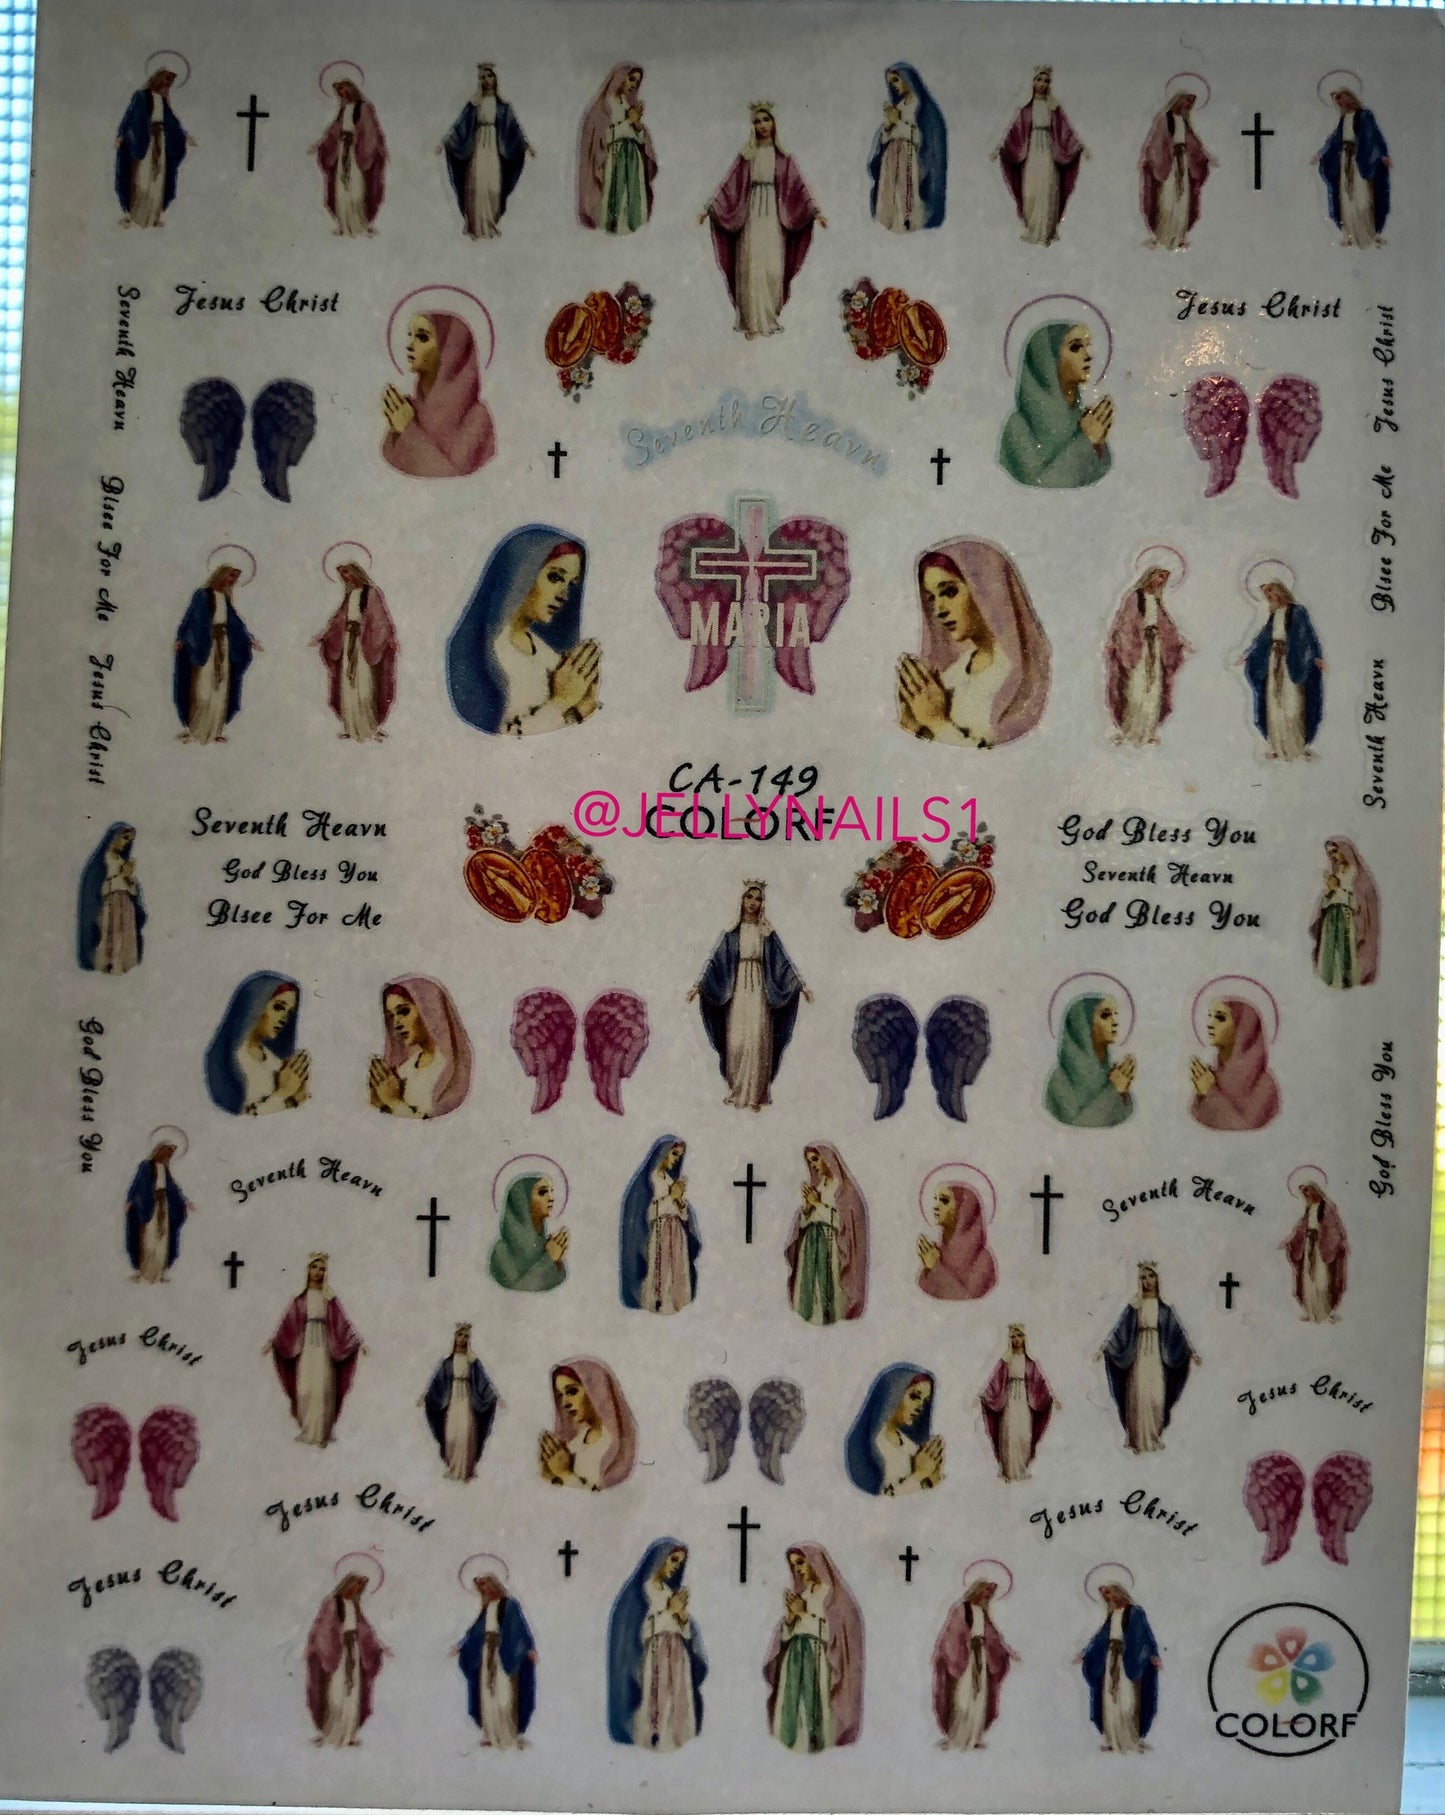 Jesus Christ
Jesus Christ
Seventh Heavn
Jesus Christ
Seventh Heavn
Blsee For Me
Blsee For Me
MARIA
Jesus Christ
Seventh Heavn
CA-149
COLORF
@JELLYNAILS1
Seventh Heavn
God Bless You
Blsee For Me
God Bless You
Seventh Heavn
God Bless You
God Bless You
God Bless You
Seventh Heavn
Seventh Heavn
Jesus Christ
Jesus Christ
Jesus Christ
Jesus Christ
Jesus Christ
COLORF